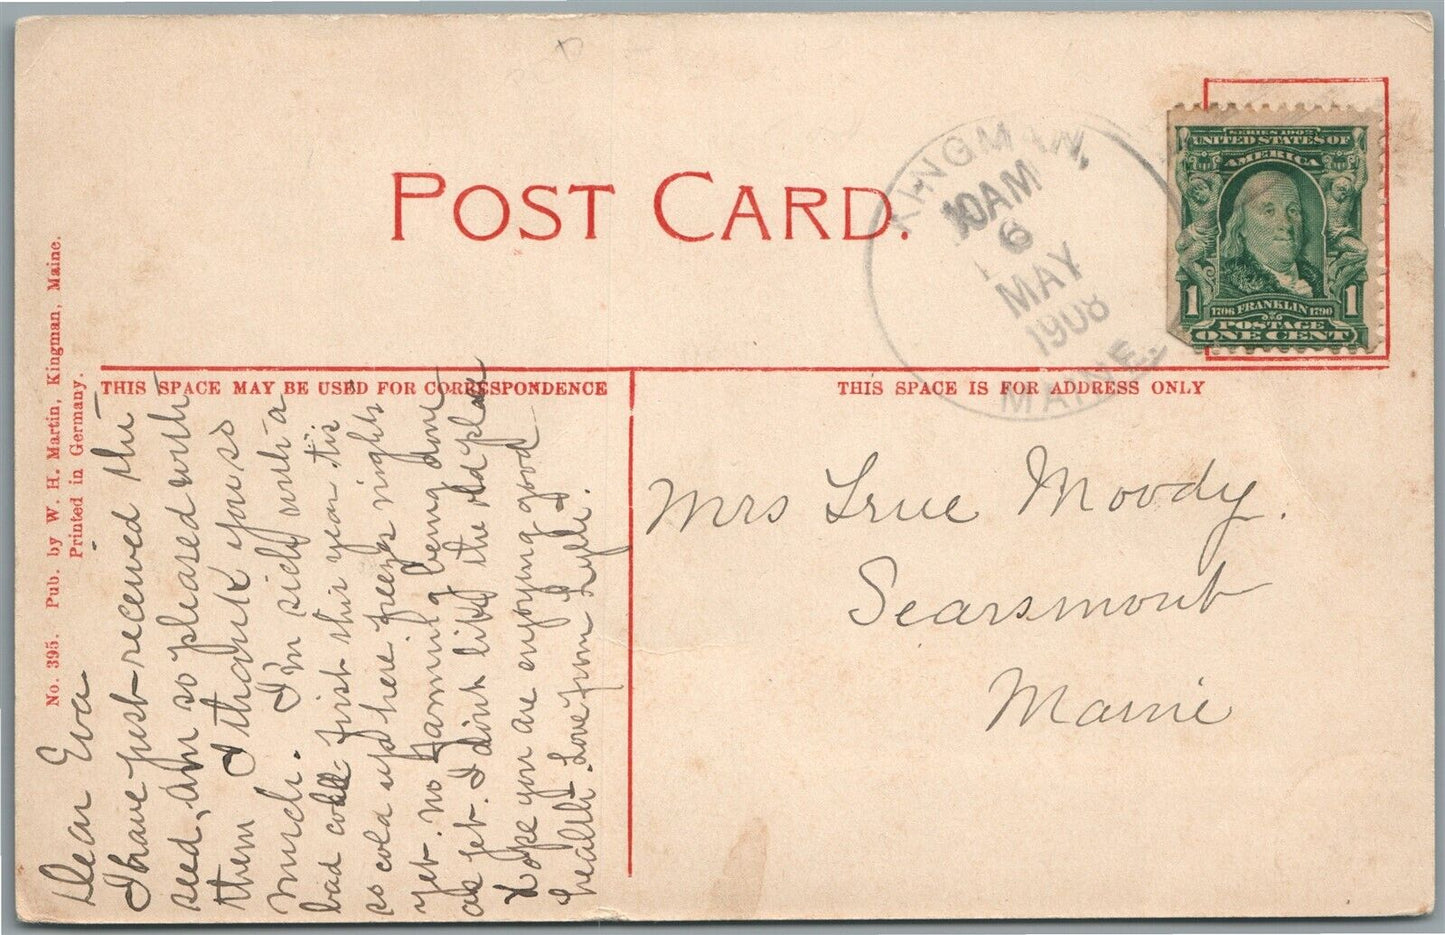 POST CARD.
KINGMAN,
10AM
6
MAY
1908
MAINE
SERIES 1902
UNITED STATES OF
AMERICA
1706 FRANKLIN 1790
POSTAGE
1 1
ONE CENT
No. 395. Pub. by W. H. Martin, Kingman, Maine.
Printed in Germany.
THIS SPACE MAY BE USED FOR CORRESPONDENCE
THIS SPACE IS FOR ADDRESS ONLY
Dear Eva
I have just received the
seed, Am so pleased with
them I thank you so
much. I'm sick with a
bad cold first this year tis
so cold up here freezes nights
yet. no farming being done
as yet. I dont like the old place
hope you are enjoying good
health. Love from Lyde.
Mrs True Moody.
Searsmont
Maine